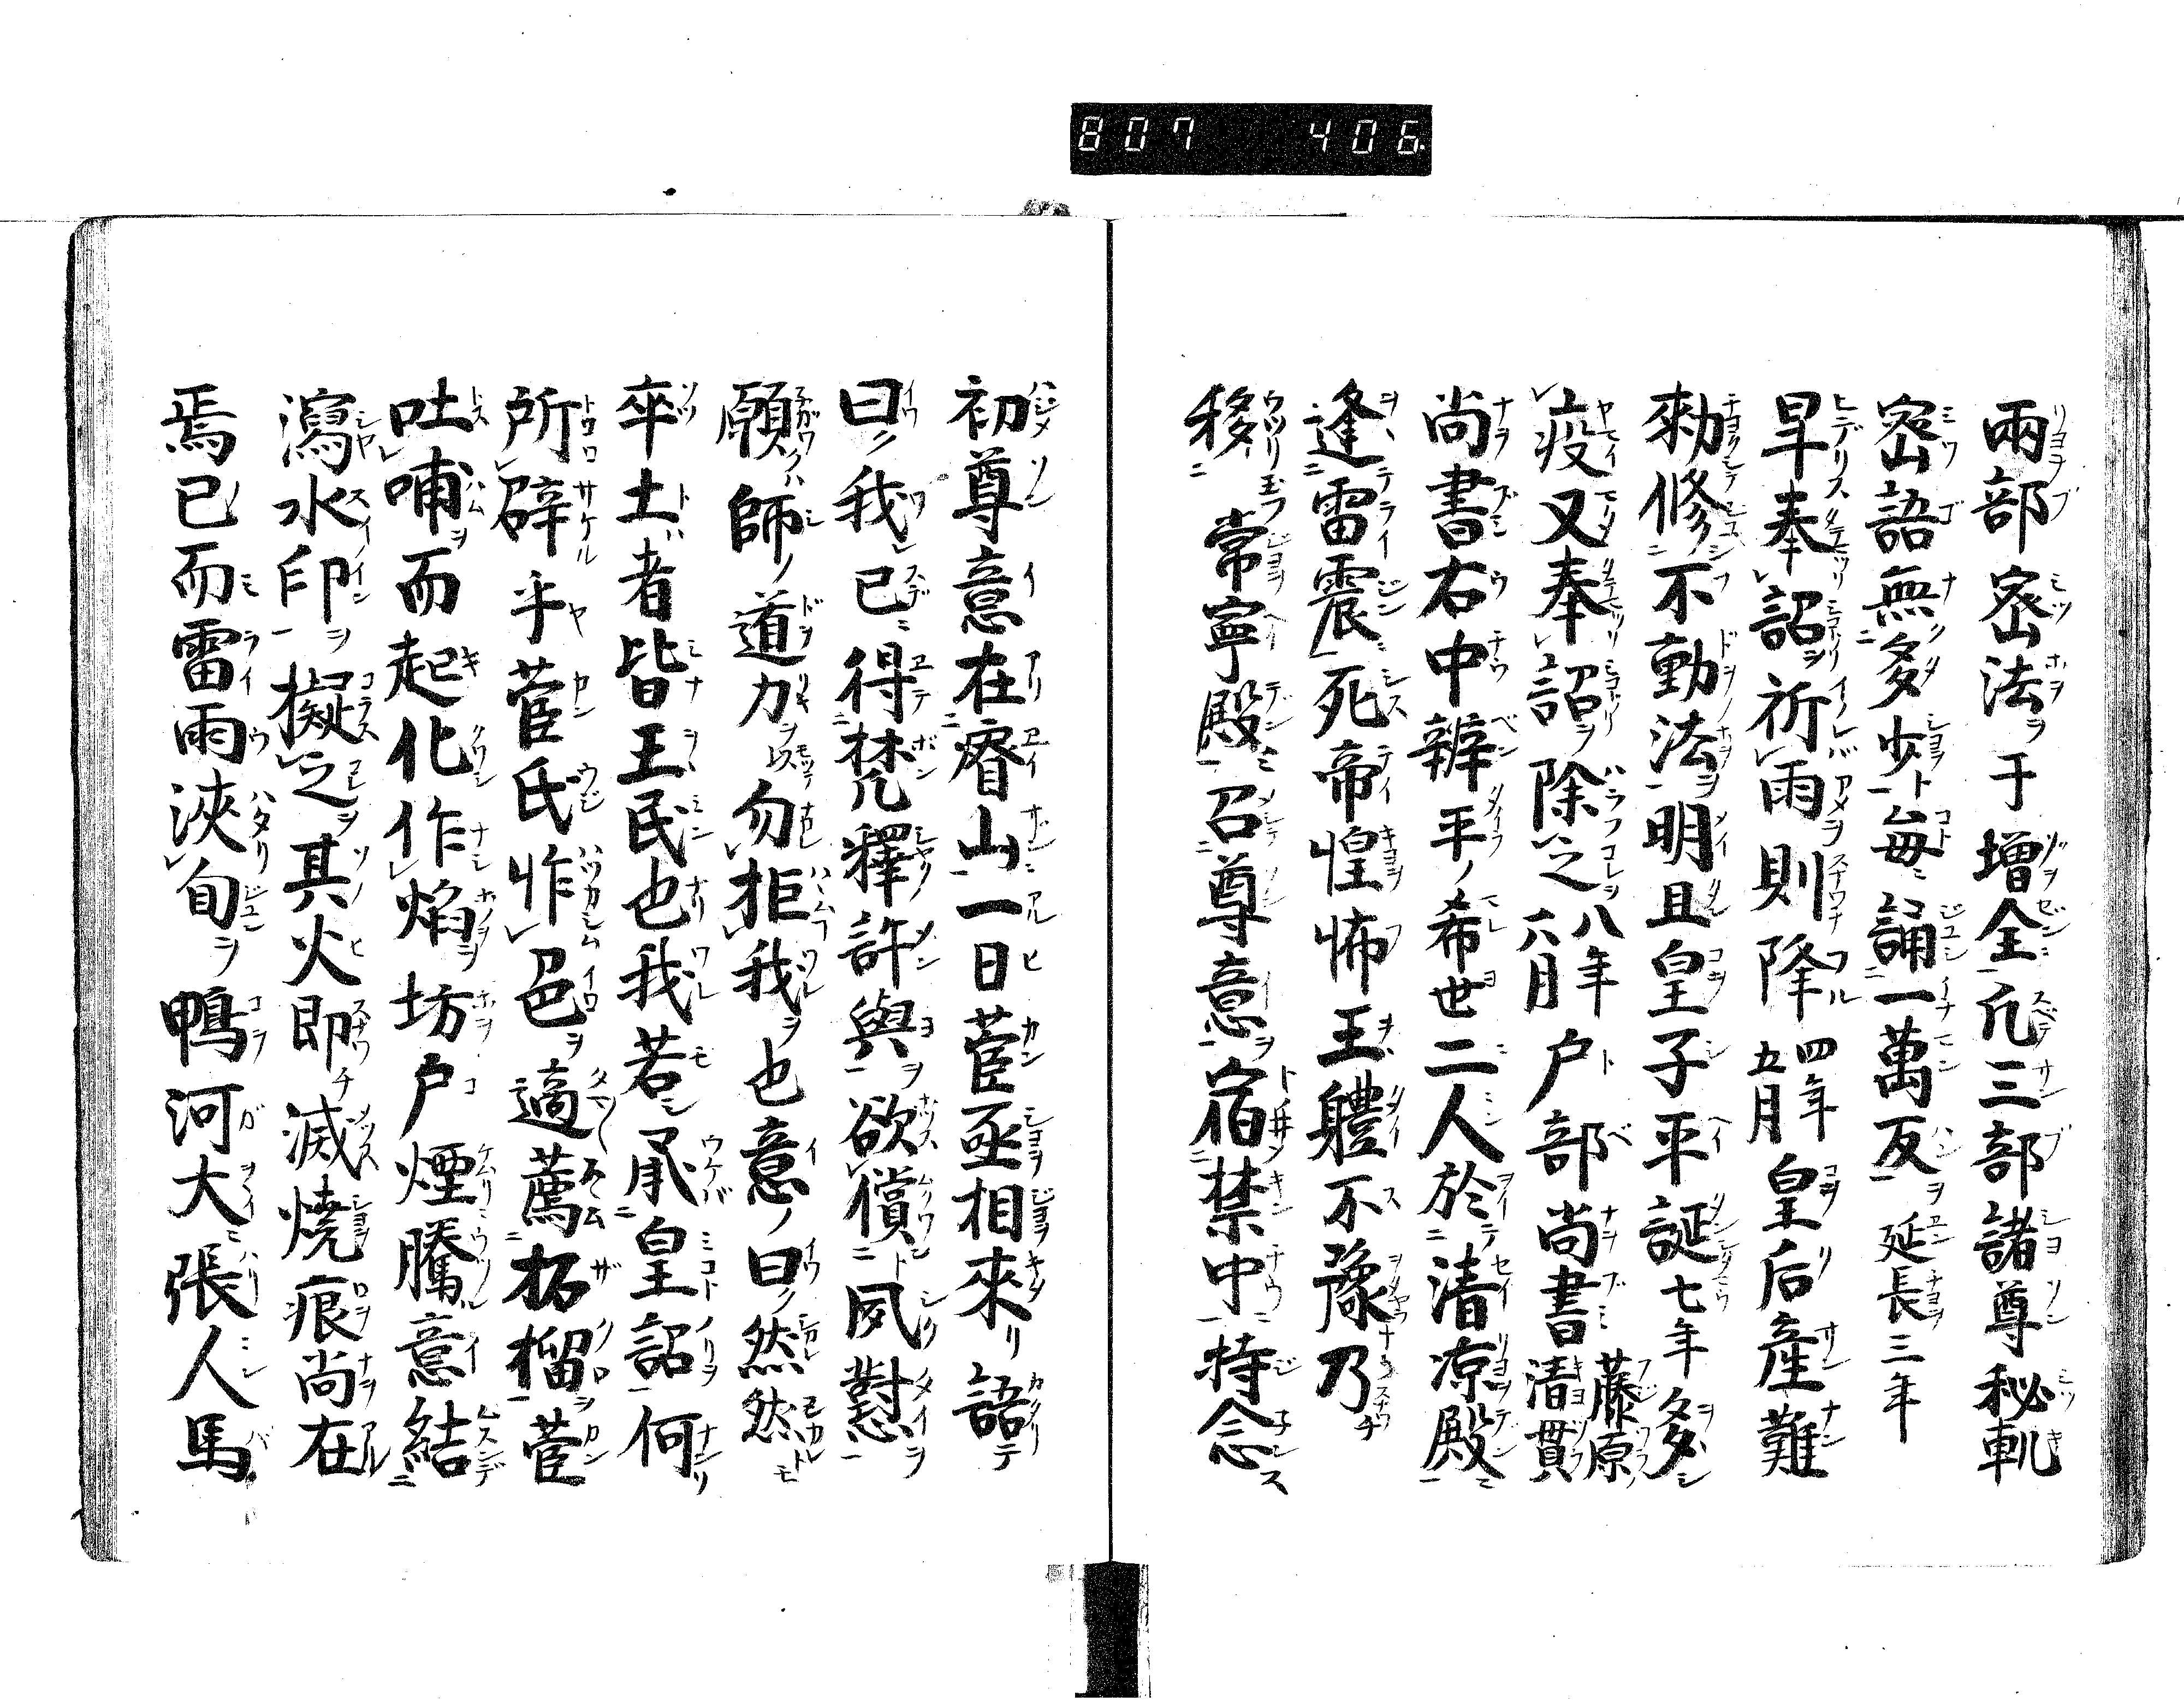 807 406
兩部密法于增全凢三部諸尊秘軌
密語無多少每誦一萬反延長三年
旱奉詔祈雨則降四年五月皇后產難
勅修不動法明且皇子平誕七年多
疫又奉詔除之八年六月戶部尚書藤原清貫
尚書右中辨平希世二人於清凉殿
逢雷震死帝惶怖王體不豫乃
移常寧殿召尊意宿禁中持念
初尊意在睿山一日菅丞相來語
曰我已得梵釋許與欲償夙懟
願師道力勿拒我也意曰然然
卒土者皆王民也我若承皇詔何
所辟乎菅氏怍色適薦柘榴菅
吐哺而起化作焰坊戶煙騰意結
瀉水印擬之其火即滅燒痕尚在
焉已而雷雨浹旬鴨河大張人馬